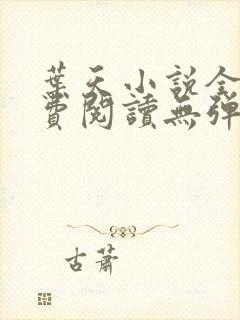 葉天小說全
費閱讀無彈
古蕭